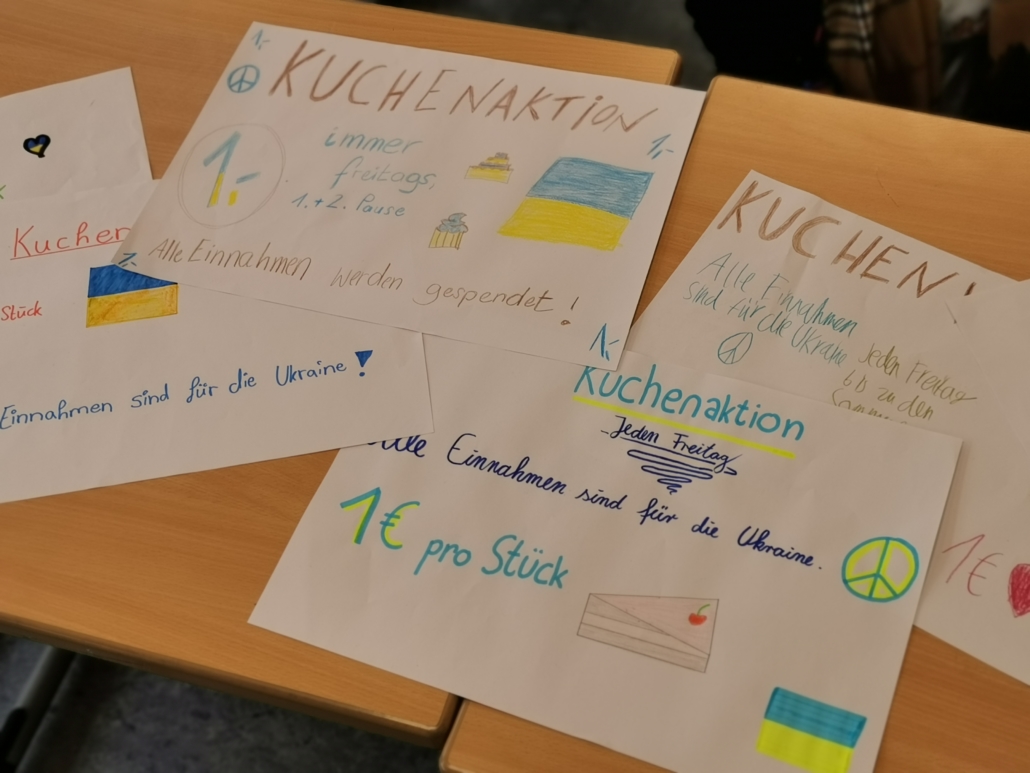 1,-
KUCHENAKTiON
1,-
1.-
immer
freitags,
1.+2. Pause
Alle Einnahmen werden gespendet!
1,-
1,-
Kuchen
Stück
Einnahmen sind für die Ukraine!
KUCHEN!
Alle Einnahmen
sind für die Ukraine
Jeden Freitag
bis zu den
1€
Kuchenaktion
Jeden Freitag
Alle Einnahmen sind für die Ukraine.
1€ pro Stück